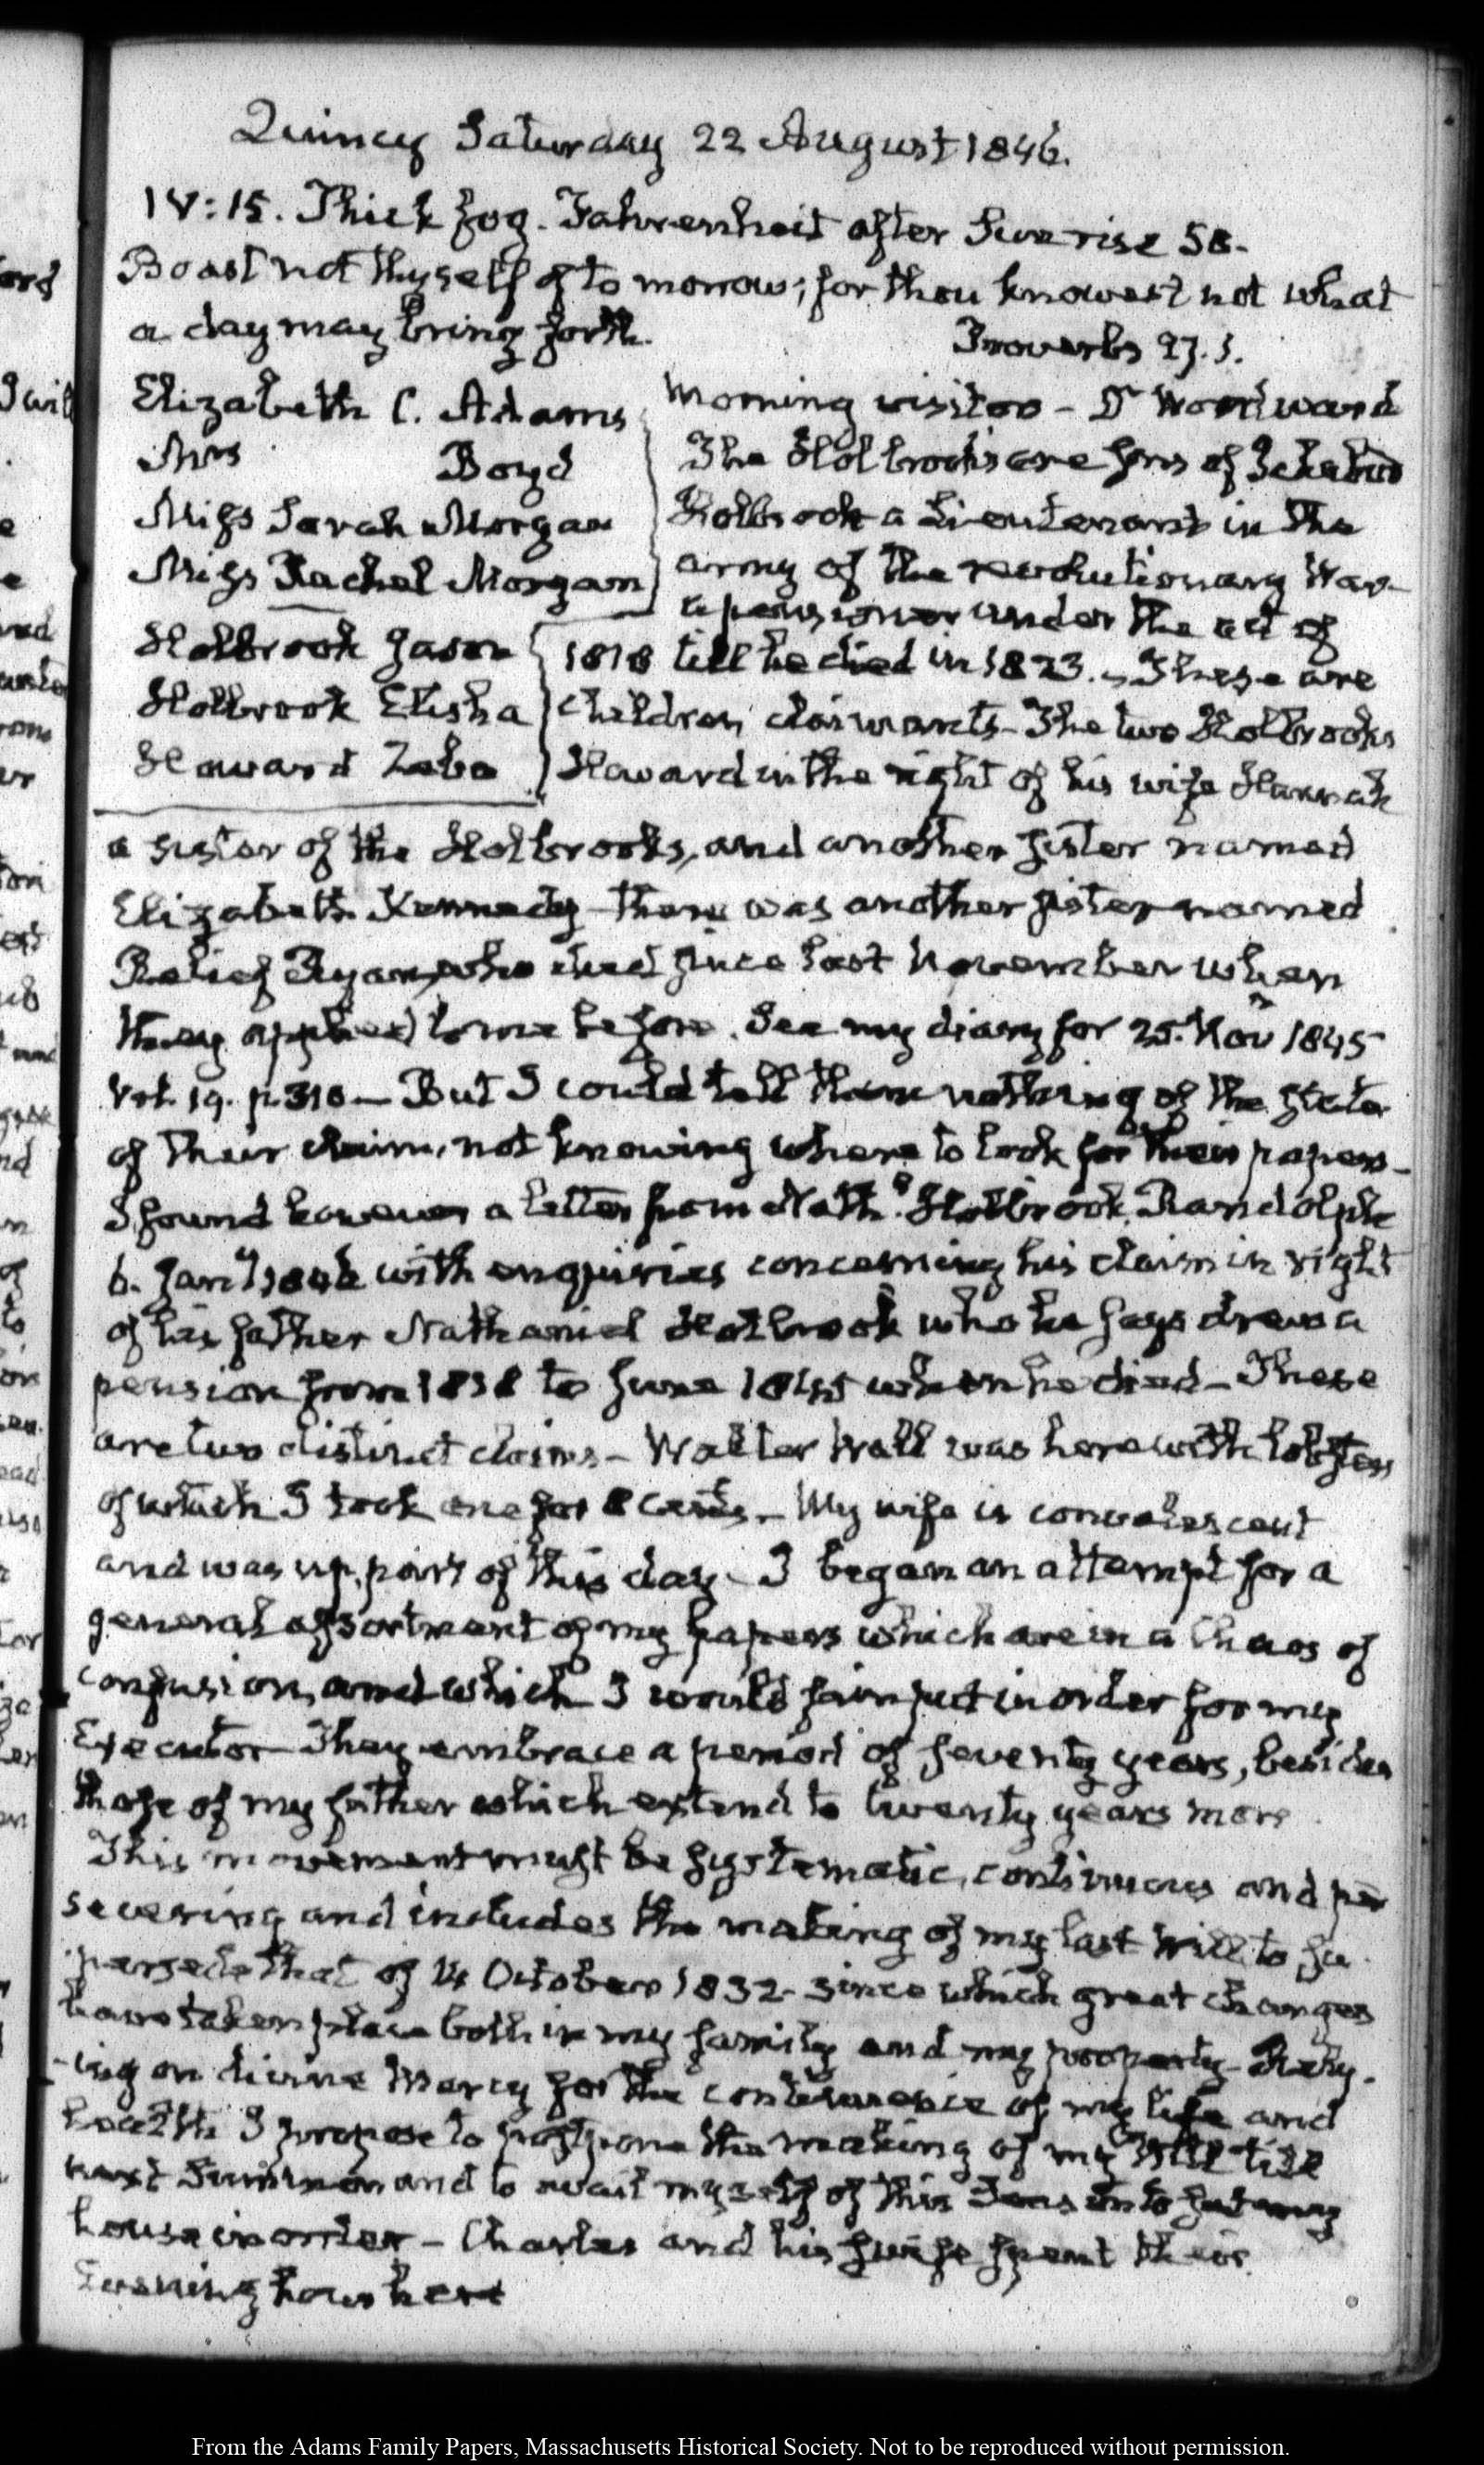 Quincy Saturday 22 August 1846.
IV:15. Thick fog. Fahrenheit after Sunrise 58.
Boast not thyself of to morrow; for thou knowest not what
a day may bring forth. Proverbs 27.1.
Elizabeth C. Adams
Mrs Boyd
Miss Sarah Morgan
Miss Rachel Morgan
Holbrook Jason
Holbrook Elisha
Howard Zeba
Morning visitor - Dr Woodward
The Holbrooks are sons of
Holbrook a Lieutenant in the
army of the revolutionary War-
a pensioner under the act of
1818 till he died in 1823. These are
Children, claimants- The two Holbrooks
Howard in the right of his wife Hannah
a sister of the Holbrooks, and another sister named
Elizabeth Kennedy - there was another sister named
Relief Ryan, who died since last November when
they applied to me before. See my diary for 25. Novr 1845
Vol. 19. p. 310 — But I could tell them nothing of the state
of their claim, not knowing where to look for their papers-
I found however a letter from Nathl. Holbrook, Randolph
6. Jany 1846 with enquiries concerning his claim in right
of his father Nathaniel Holbrook who he says drew a
pension from 1818 to June 1845 when he died - These
are two distinct claims - Walter Hall was here with lobsters
of which I took one for 8 Cents. - My wife is convalescent
and was up, part of this day - I began an attempt for a
general assortment of my papers which are in a Chaos of
confusion, and which I would fain put in order for my
Executor - They embrace a period of seventy years, besides
those of my father which extend to twenty years more
This movement must be systematic, continuous and per
severing and includes the making of my last Will to su
persede that of 14 October 1832 - since which great changes
have taken place both in my family and my property - Rely-
-ing on divine Mercy for the continuance of my life and
health I propose to postpone the making of my Will till
next Summer and to avail myself of this Season to set my
house in order - Charles and his wife spent their
Evening hour here
From the Adams Family Papers, Massachusetts Historical Society. Not to be reproduced without permission.